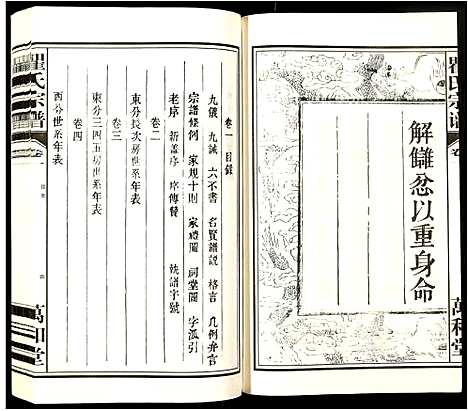 瞿氏宗谱
卷一
萬和堂
解讎忿以重身命
卷一 目錄
九儀 九誡 六不書 名賢譜説 格言 凡例弁言
宗譜條例 家規十則 家禮圖 祠堂圖 字派引
老序 新蓋序 序傳贊 統譜字號
卷二
東分長次房世系年表
卷三
東分三四五房世系年表
卷四
西分世系年表
瞿氏宗谱
卷一
目錄
萬和堂